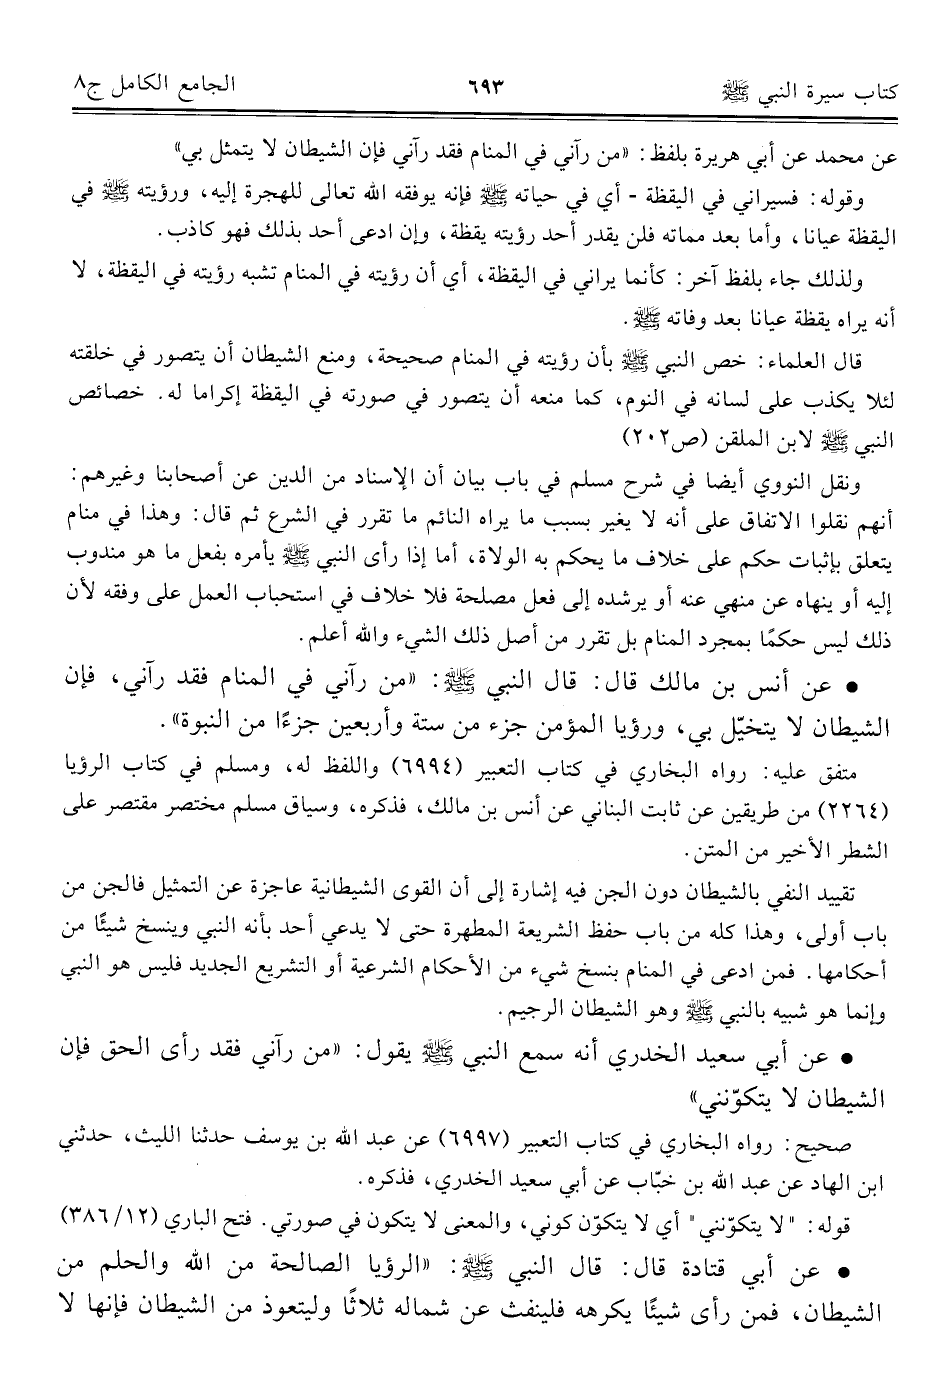 كتاب سيرة النبي ﷺ ٦٩٣ الجامع الكامل ج٨
عن محمد عن أبي هريرة بلفظ: «من رآني في المنام فقد رآني فإن الشيطان لا يتمثل بي»
وقوله: فسيراني في اليقظة - أي في حياته ﷺ فإنه يوفقه الله تعالى للهجرة إليه، ورؤيته ﷺ في
اليقظة عيانا، وأما بعد مماته فلن يقدر أحد رؤيته يقظة، وإن ادعى أحد بذلك فهو كاذب.
ولذلك جاء بلفظ آخر: كأنما يراني في اليقظة، أي أن رؤيته في المنام تشبه رؤيته في اليقظة، لا
أنه يراه يقظة عيانا بعد وفاته ﷺ.
قال العلماء: خص النبي ﷺ بأن رؤيته في المنام صحيحة، ومنع الشيطان أن يتصور في خلقته
لئلا يكذب على لسانه في النوم، كما منعه أن يتصور في صورته في اليقظة إكراما له. خصائص
النبي ﷺ لابن الملقن (ص٢٠٢)
ونقل النووي أيضا في شرح مسلم في باب بيان أن الإسناد من الدين عن أصحابنا وغيرهم:
أنهم نقلوا الاتفاق على أنه لا يغير بسبب ما يراه النائم ما تقرر في الشرع ثم قال: وهذا في منام
يتعلق بإثبات حكم على خلاف ما يحكم به الولاة، أما إذا رأى النبي ﷺ يأمره بفعل ما هو مندوب
إليه أو ينهاه عن منهي عنه أو يرشده إلى فعل مصلحة فلا خلاف في استحباب العمل على وفقه لأن
ذلك ليس حكمًا بمجرد المنام بل تقرر من أصل ذلك الشيء والله أعلم.
• عن أنس بن مالك قال: قال النبي ﷺ: «من رآني في المنام فقد رآني، فإن
الشيطان لا يتخيّل بي، ورؤيا المؤمن جزء من ستة وأربعين جزءًا من النبوة».
متفق عليه: رواه البخاري في كتاب التعبير (٦٩٩٤) واللفظ له، ومسلم في كتاب الرؤيا
(٢٢٦٤) من طريقين عن ثابت البناني عن أنس بن مالك، فذكره، وسياق مسلم مختصر مقتصر على
الشطر الأخير من المتن.
تقييد النفي بالشيطان دون الجن فيه إشارة إلى أن القوى الشيطانية عاجزة عن التمثيل فالجن من
باب أولى، وهذا كله من باب حفظ الشريعة المطهرة حتى لا يدعي أحد بأنه النبي وينسخ شيئًا من
أحكامها. فمن ادعى في المنام بنسخ شيء من الأحكام الشرعية أو التشريع الجديد فليس هو النبي
وإنما هو شبيه بالنبي ﷺ وهو الشيطان الرجيم.
• عن أبي سعيد الخدري أنه سمع النبي ﷺ يقول: «من رآني فقد رأى الحق فإن
الشيطان لا يتكوّنني»
صحيح: رواه البخاري في كتاب التعبير (٦٩٩٧) عن عبد الله بن يوسف حدثنا الليث، حدثني
ابن الهاد عن عبد الله بن خبّاب عن أبي سعيد الخدري، فذكره.
قوله: "لا يتكوّنني" أي لا يتكوّن كوني، والمعنى لا يتكون في صورتي. فتح الباري (١٢/٣٨٦)
• عن أبي قتادة قال: قال النبي ﷺ: «الرؤيا الصالحة من الله والحلم من
الشيطان، فمن رأى شيئًا يكرهه فلينفث عن شماله ثلاثًا وليتعوذ من الشيطان فإنها لا